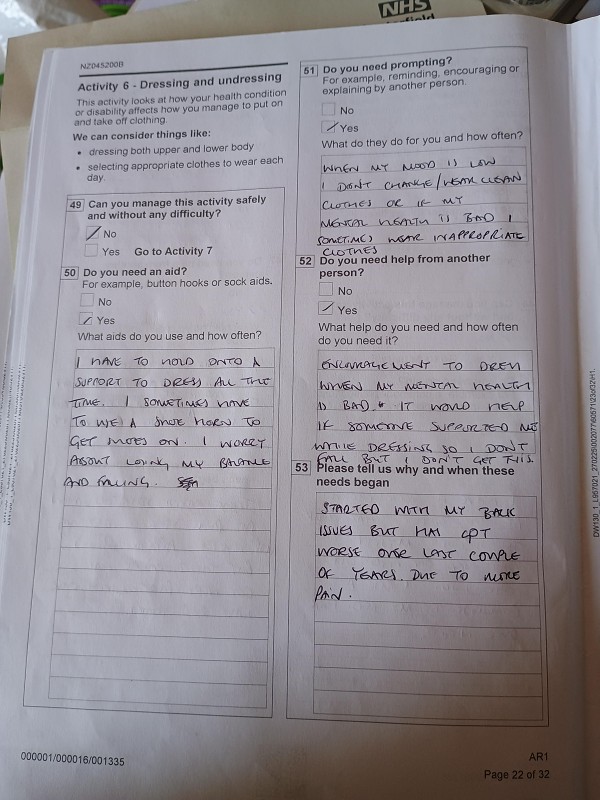 NHS
NZ045200B
Activity 6 - Dressing and undressing
This activity looks at how your health condition
or disability affects how you manage to put on
and take off clothing.
We can consider things like:
• dressing both upper and lower body
• selecting appropriate clothes to wear each
day.
49 Can you manage this activity safely
and without any difficulty?
No
Yes Go to Activity 7
50 Do you need an aid?
For example, button hooks or sock aids.
No
Yes
What aids do you use and how often?
I HAVE TO HOLD ONTO A
SUPPORT TO DRESS ALL THE
TIME. I SOMETIMES HAVE
TO USE A SHOE HORN TO
GET SHOES ON. I WORRY
ABOUT LOSING MY BALANCE
AND FALLING.
51 Do you need prompting?
For example, reminding, encouraging or
explaining by another person.
No
Yes
What do they do for you and how often?
WHEN MY MOOD IS LOW
I DON'T CHANGE/WEAR CLEAN
CLOTHES OR IF MY
MENTAL HEALTH IS BAD I
SOMETIMES WEAR INAPPROPRIATE
CLOTHES
52 Do you need help from another
person?
No
Yes
What help do you need and how often
do you need it?
ENCOURAGEMENT TO DRESS
WHEN MY MENTAL HEALTH
IS BAD. IT WOULD HELP
IF SOMEONE SUPPORTED ME
WHILE DRESSING SO I DON'T
FALL BUT I DON'T GET THIS.
53 Please tell us why and when these
needs began
STARTED WITH MY BACK
ISSUES BUT HAS GOT
WORSE OVER LAST COUPLE
OF YEARS DUE TO MORE
PAIN.
000001/000016/001335
AR1
Page 22 of 32